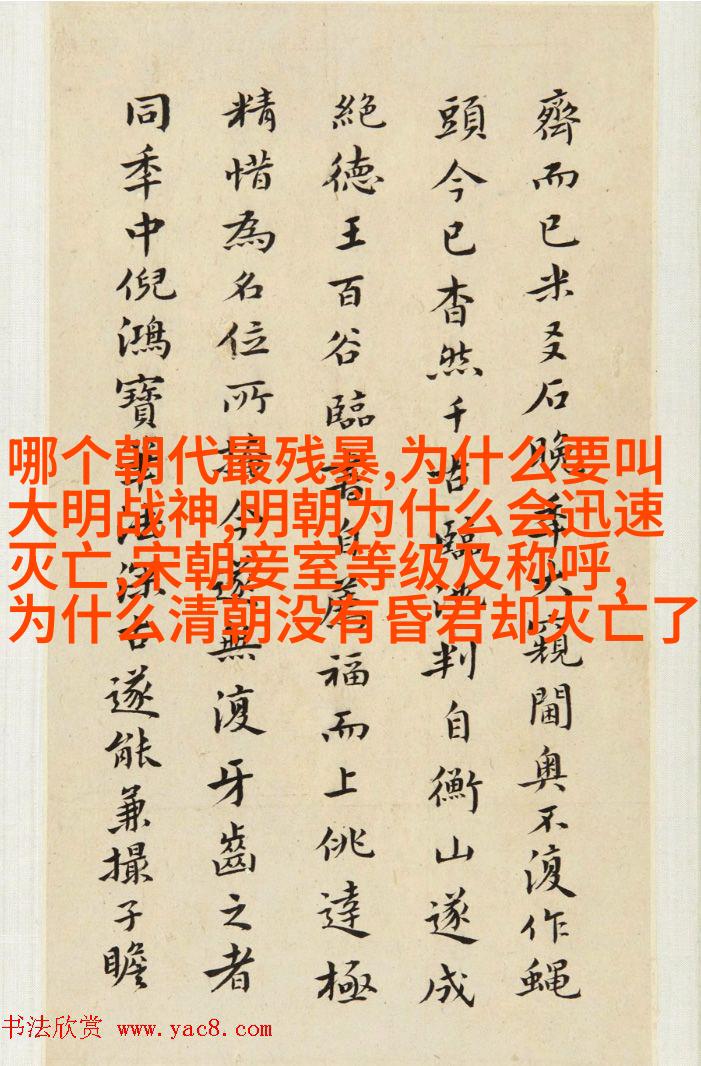 齊而已米友石晚年大窺閫奥不復作蝇
頭今已杳然千古臨池判自衡山遂成
絶德王百谷臨書自薦福而上佻達極
精惜為名位所掩今遂無復牙齒之者
同年中倪鴻寶筆法深古遂能兼撮子瞻
哪个朝代最残暴,为什么要叫
大明战神,明朝为什么会迅速
灭亡,宋朝妾室等级及称呼,
为什么清朝没有昏君却灭亡了
书法欣赏 www.yac8.com